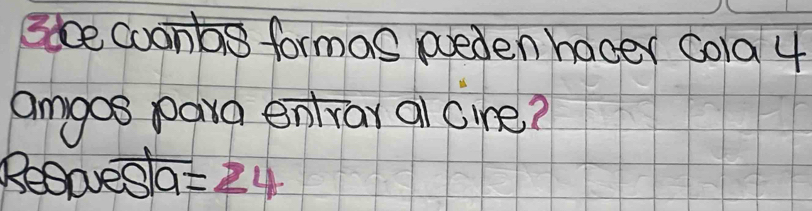 3¿De cuantas formas pueden hacer cola 4
amigos para entrar al cine?
Respuesta = 24